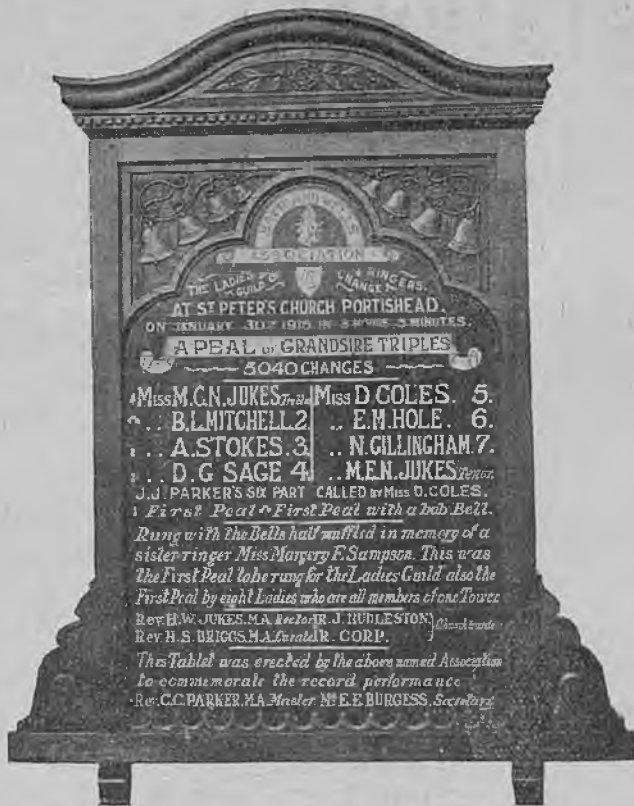 BATH AND WELLS
ASSOCIATION
THE LADIES GUILD OF CHANGE RINGERS.
AT ST PETER'S CHURCH PORTISHEAD.
ON JANUARY 30TH 1915 IN 3 HOURS 5 MINUTES.
A PEAL OF GRANDSIRE TRIPLES
5040 CHANGES
MISS M.G.N. JUKES Treble MISS D COLES. 5.
.. B.L. MITCHELL. 2. .. E.M. HOLE. 6.
.. A. STOKES. 3. .. N. GILLINGHAM. 7.
.. D. G SAGE 4. .. M.E.N. JUKES Tenor.
J.J. PARKER'S SIX PART CALLED BY MISS D. COLES.
First Peal First Peal with a bob Bell.
Rung with the Bells half muffled in memory of a
sister ringer Miss Margery F. Sampson. This was
the First Peal to be rung for the Ladies Guild also the
First Peal by eight Ladies who are all members of one Tower
Rev. H.W. JUKES. M.A. Rector R. J. HUDLESTON
Rev. H.S. BRIGGS. M.A. Curate R. CORP.
This Tablet was erected by the above named Association
to commemorate the record performance
Rev. C.C. PARKER. M.A. Master Mr E.E BURGESS. Secretary